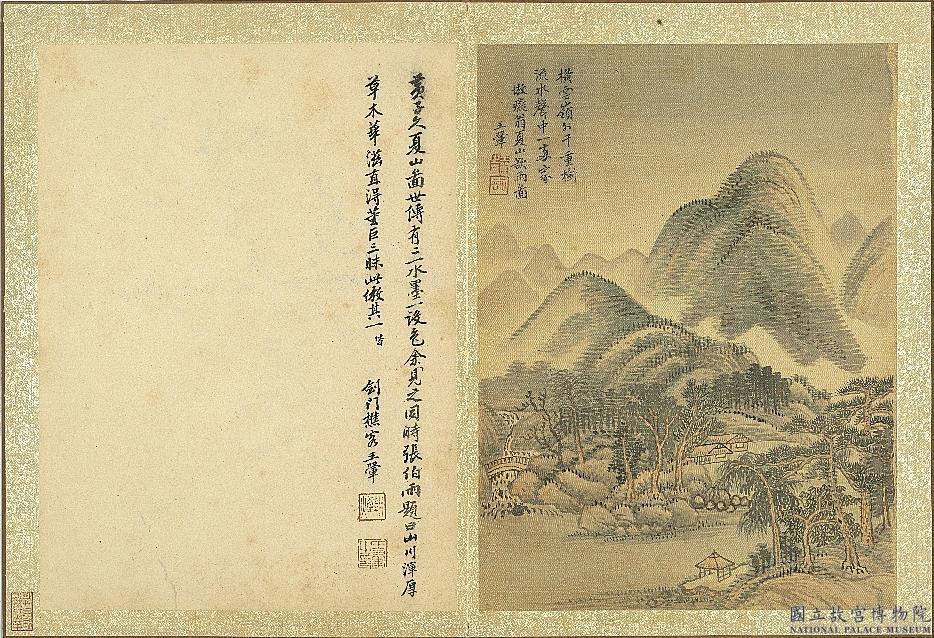 橫雲嶺外千重樹
流水聲中一兩家
倣癡翁夏山欲雨圖
王翬
黃子久夏山圖世傳有二水墨一設色余見之同時張伯雨題曰山川渾厚
草木華滋直得董巨三昧此倣其一 皆
劍門樵客王翬
國立故宮博物院
NATIONAL PALACE MUSEUM